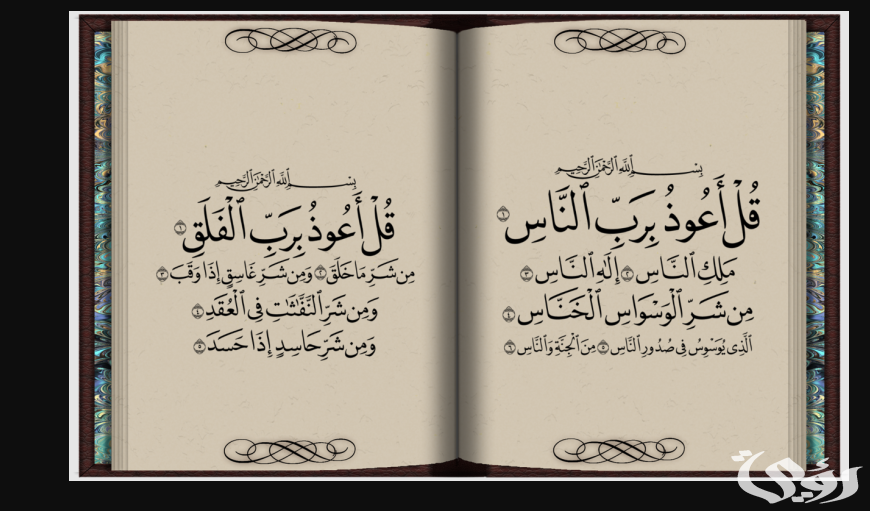 بِسْمِ ٱللَّهِ ٱلرَّحْمَٰنِ ٱلرَّحِيمِ
قُلْ أَعُوذُ بِرَبِّ ٱلنَّاسِ ١
مَلِكِ ٱلنَّاسِ ٢ إِلَٰهِ ٱلنَّاسِ ٣
مِن شَرِّ ٱلْوَسْوَاسِ ٱلْخَنَّاسِ ٤
ٱلَّذِى يُوَسْوِسُ فِى صُدُورِ ٱلنَّاسِ ٥ مِنَ ٱلْجِنَّةِ وَٱلنَّاسِ ٦
بِسْمِ ٱللَّهِ ٱلرَّحْمَٰنِ ٱلرَّحِيمِ
قُلْ أَعُوذُ بِرَبِّ ٱلْفَلَقِ ١
مِن شَرِّ مَا خَلَقَ ٢ وَمِن شَرِّ غَاسِقٍ إِذَا وَقَبَ ٣
وَمِن شَرِّ ٱلنَّفَّٰثَٰتِ فِى ٱلْعُقَدِ ٤
وَمِن شَرِّ حَاسِدٍ إِذَا حَسَدَ ٥
رؤى